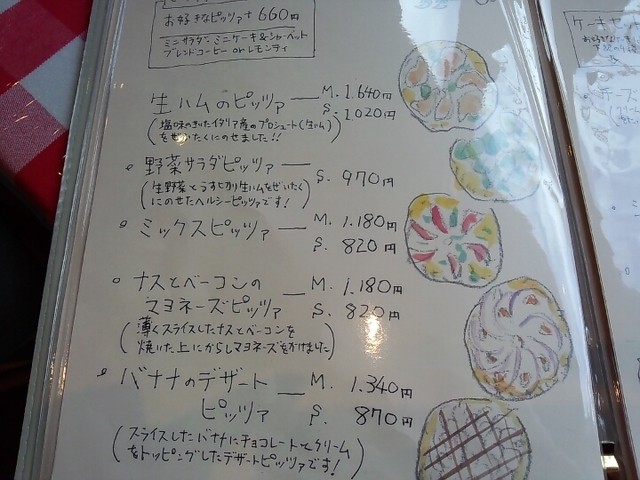 お好きなピッツァ+660円
ミニサラダ・ミニケーキ&シャーベット
ブレンドコーヒー or レモンティ
生ハムのピッツァ — M. 1.640円
S. 1.020円
(塩味のきいたイタリア産のプロシュート(生ハム)
をぜいたくにのせました!!)
。野菜サラダピッツァ —
S. 970円
(生野菜とうす切り生ハムをぜいたく
にのせたヘルシーピッツァです!)
。ミックスピッツァ — M. 1.180円
S. 820円
。ナスとベーコンの
マヨネーズピッツァ — M. 1.180円
S. 820円
(薄くスライスしたナスとベーコンを
焼いた上にからしマヨネーズをかけました)
。バナナのデザート
ピッツァ — M. 1.340円
S. 870円
(スライスしたバナナにチョコレートとクリーム
をトッピングしたデザートピッツァです!)
ケーキセット